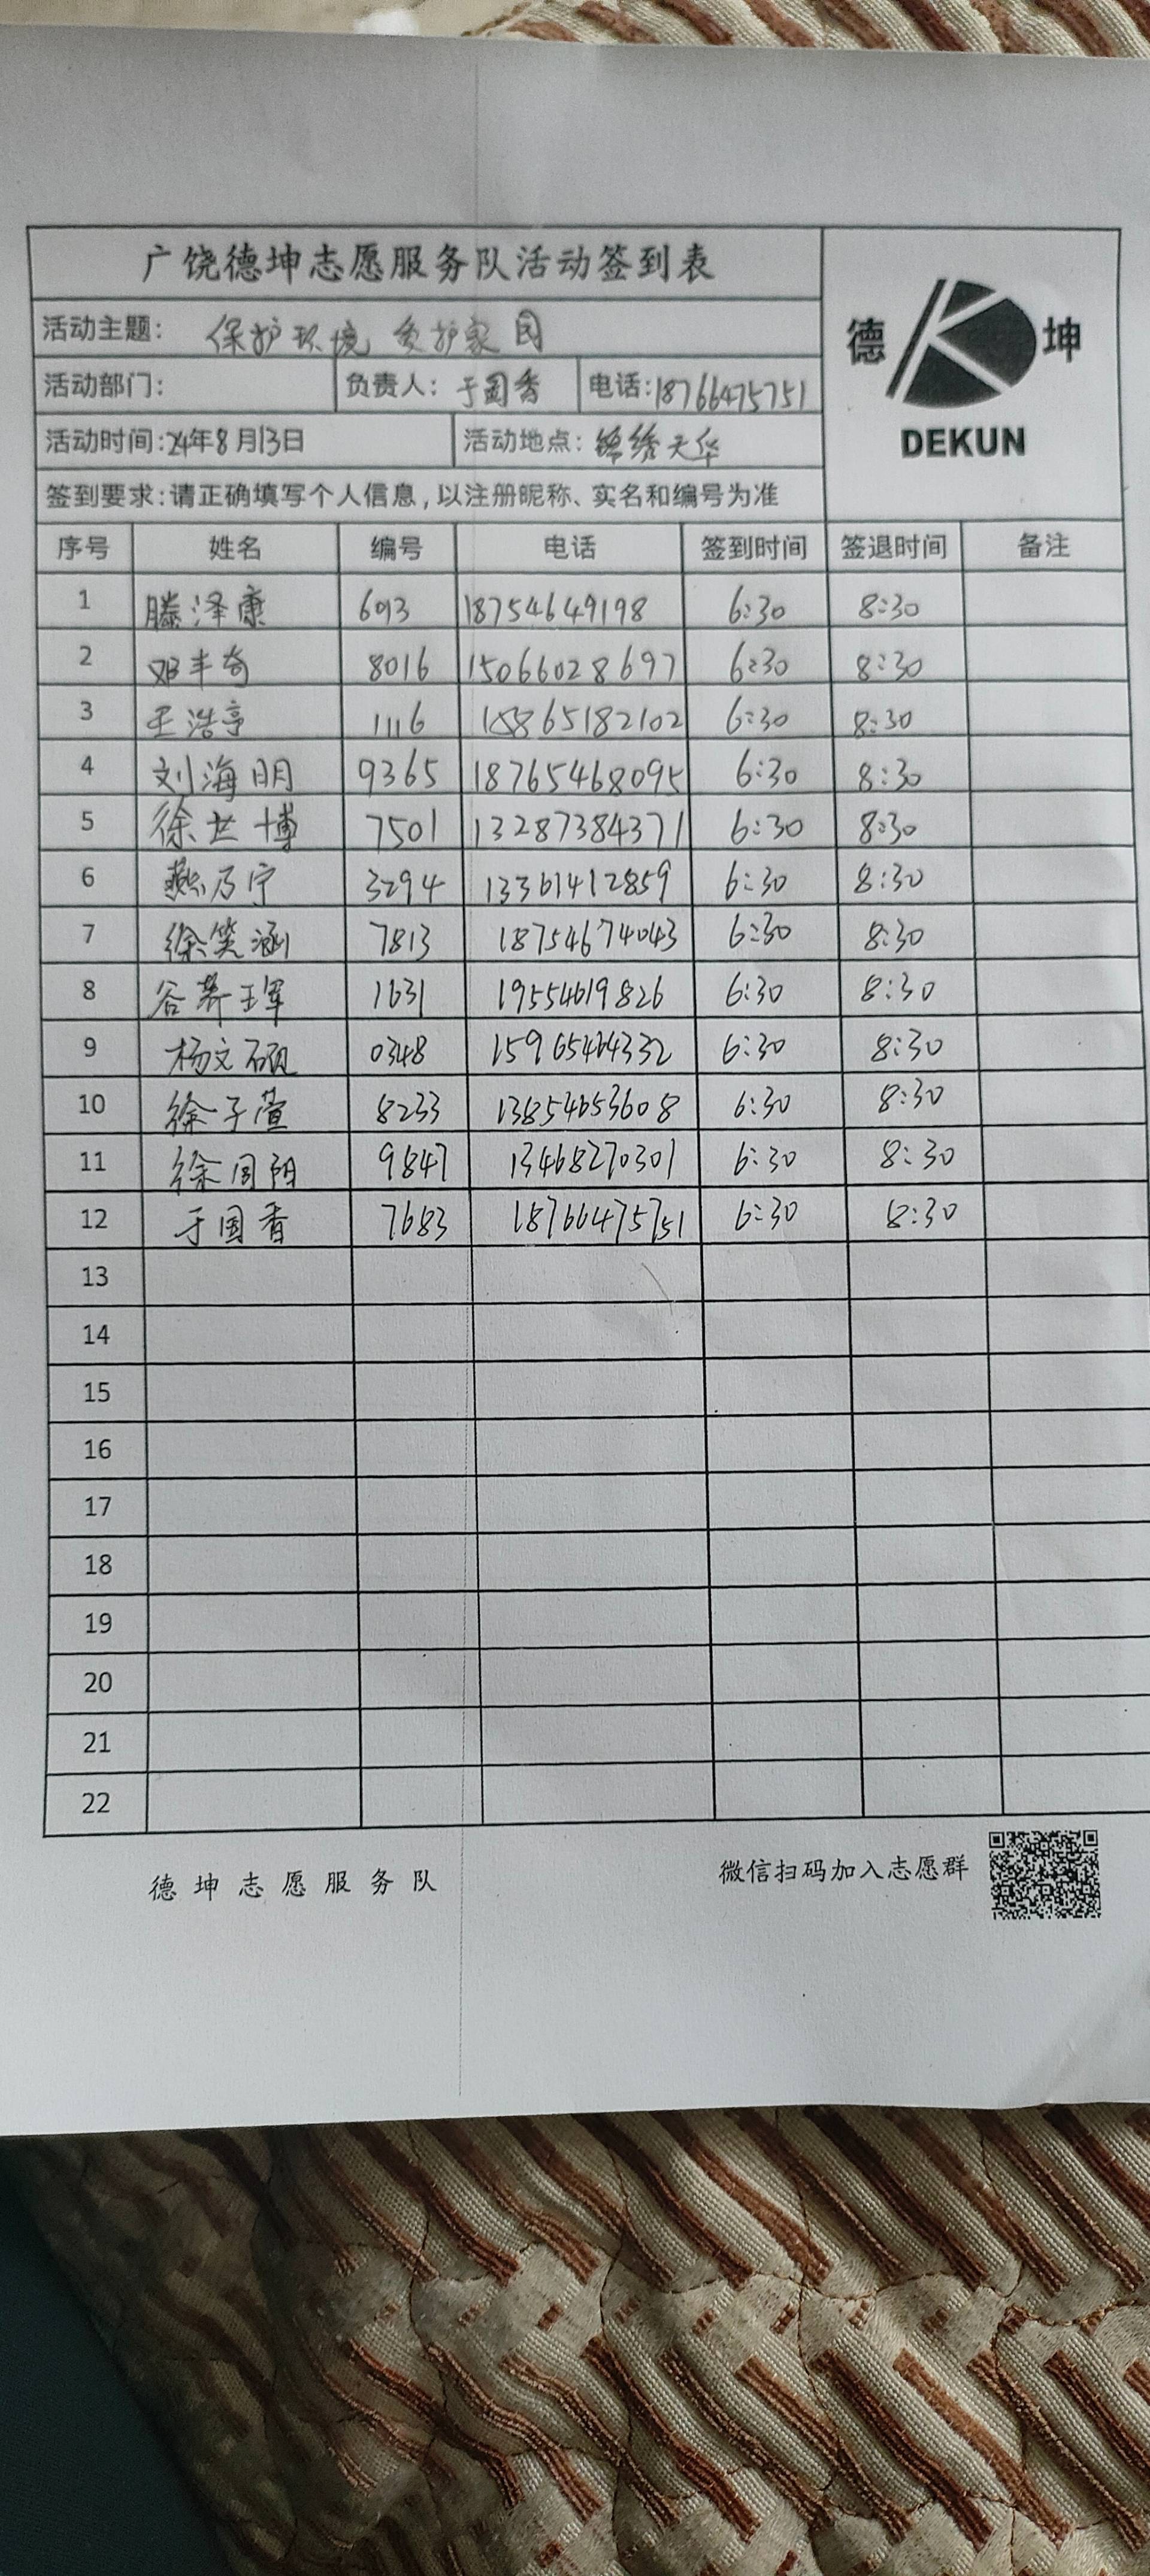 广饶德坤志愿服务队活动签到表
活动主题: 保护环境 爱护家园
德 坤
活动部门: 负责人: 于国香 电话:18766475751
DEKUN
活动时间:24年8月13日 活动地点: 锦绣天华
签到要求:请正确填写个人信息,以注册昵称、实名和编号为准
序号 姓名 编号 电话 签到时间 签退时间 备注
1 滕泽康 6013 18754649198 6:30 8:30
2 邓丰奇 8016 15066028697 6:30 8:30
3 王浩亨 1116 18865182102 6:30 8:30
4 刘海明 9365 18765468095 6:30 8:30
5 徐世博 7501 13287384371 6:30 8:30
6 燕乃宁 3294 13361412859 6:30 8:30
7 徐笑涵 7813 18754674043 6:30 8:30
8 1631 19554619826 6:30 8:30
9 杨文硕 0348 15965464332 6:30 8:30
10 徐子萱 8233 13854653608 6:30 8:30
11 徐同阳 9847 13468270301 6:30 8:30
12 于国香 7683 18766475751 6:30 8:30
13
14
15
16
17
18
19
20
21
22
德坤志愿服务队 微信扫码加入志愿群